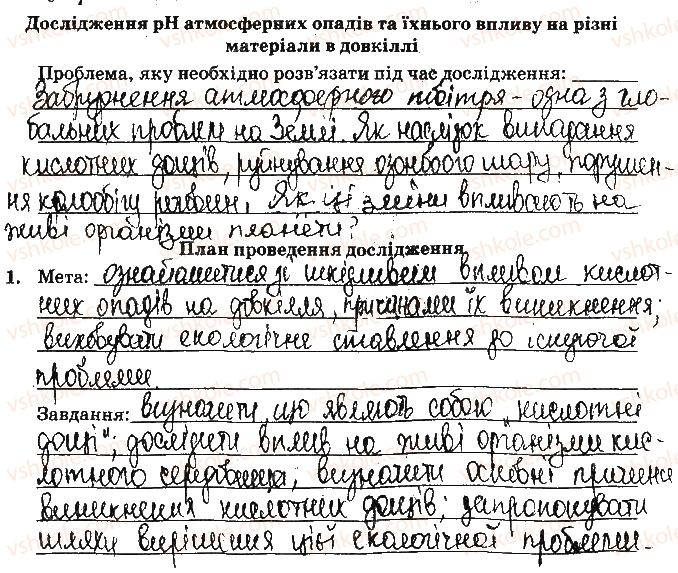 Дослідження рН атмосферних опадів та їхнього впливу на різні
матеріали в довкіллі
Проблема, яку необхідно розв'язати під час дослідження:
Забруднення атмосферного повітря - одна з гло-
бальних проблем на Землі. Як наслідок випадання
кислотних дощів, руйнування озонового шару, порушен-
ня колообігу речовин. Як ці зміни впливають на
живі організми планети?
План проведення дослідження
1. Мета: ознайомитися зі шкідливим впливом кислот-
них опадів на довкілля, причинами їх виникнення;
виховувати екологічне ставлення до існуючої
проблеми.
Завдання: визначити що являють собою "кислотні
дощі"; дослідити вплив на живі організми кис-
лотного середовища; визначити основні причини
виникнення кислотних дощів; запропонувати
шляхи вирішення цієї екологічної проблеми.